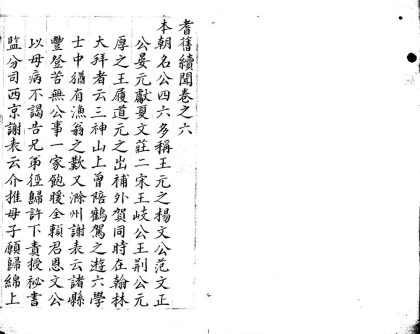 耆舊續聞卷之六
本朝名公四六多稱王元之楊文公范文正
公晏元獻夏文莊二宋王岐公王荆公元
厚之王履道元之出補外賀同時在翰林
大拜者云三神山上曾陪鶴駕之遊六學
士中猶有漁翁之歎又滁州謝表云諸縣
豐登苦無公事一家飽暖全賴君恩文公
以母病不謁告兄弟徑歸許下責授祕書
監分司西京謝表云介推母子願歸綿上